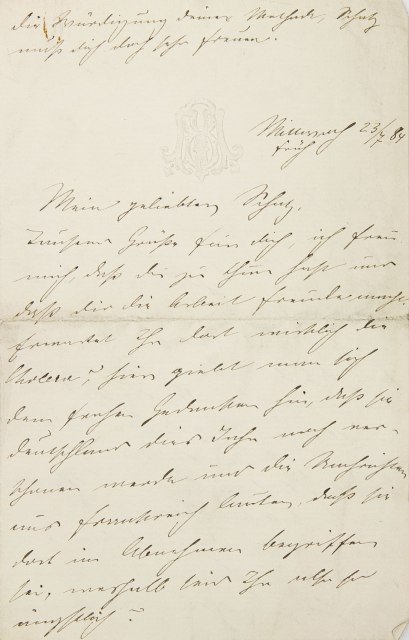 die Würdigung deiner Methode, Schatz
muß dich doch sehr freuen.
Mittwoch 23/7 84
früh
Mein geliebter Schatz,
Tausend Grüße für dich, ich freue
mich, daß du zu thun hast und
daß dir die Arbeit Freude macht.
Erwartet Ihr dort wirklich die
Cholera, hier giebt man sich
dem frohen Gedanken hin, daß sie
Deutschland dies Jahr noch ver-
schonen werde und die Nachrichten
aus Frankreich lauten, daß sie
dort im Abnehmen begriffen
sei, weshalb seid Ihr also so
ängstlich?